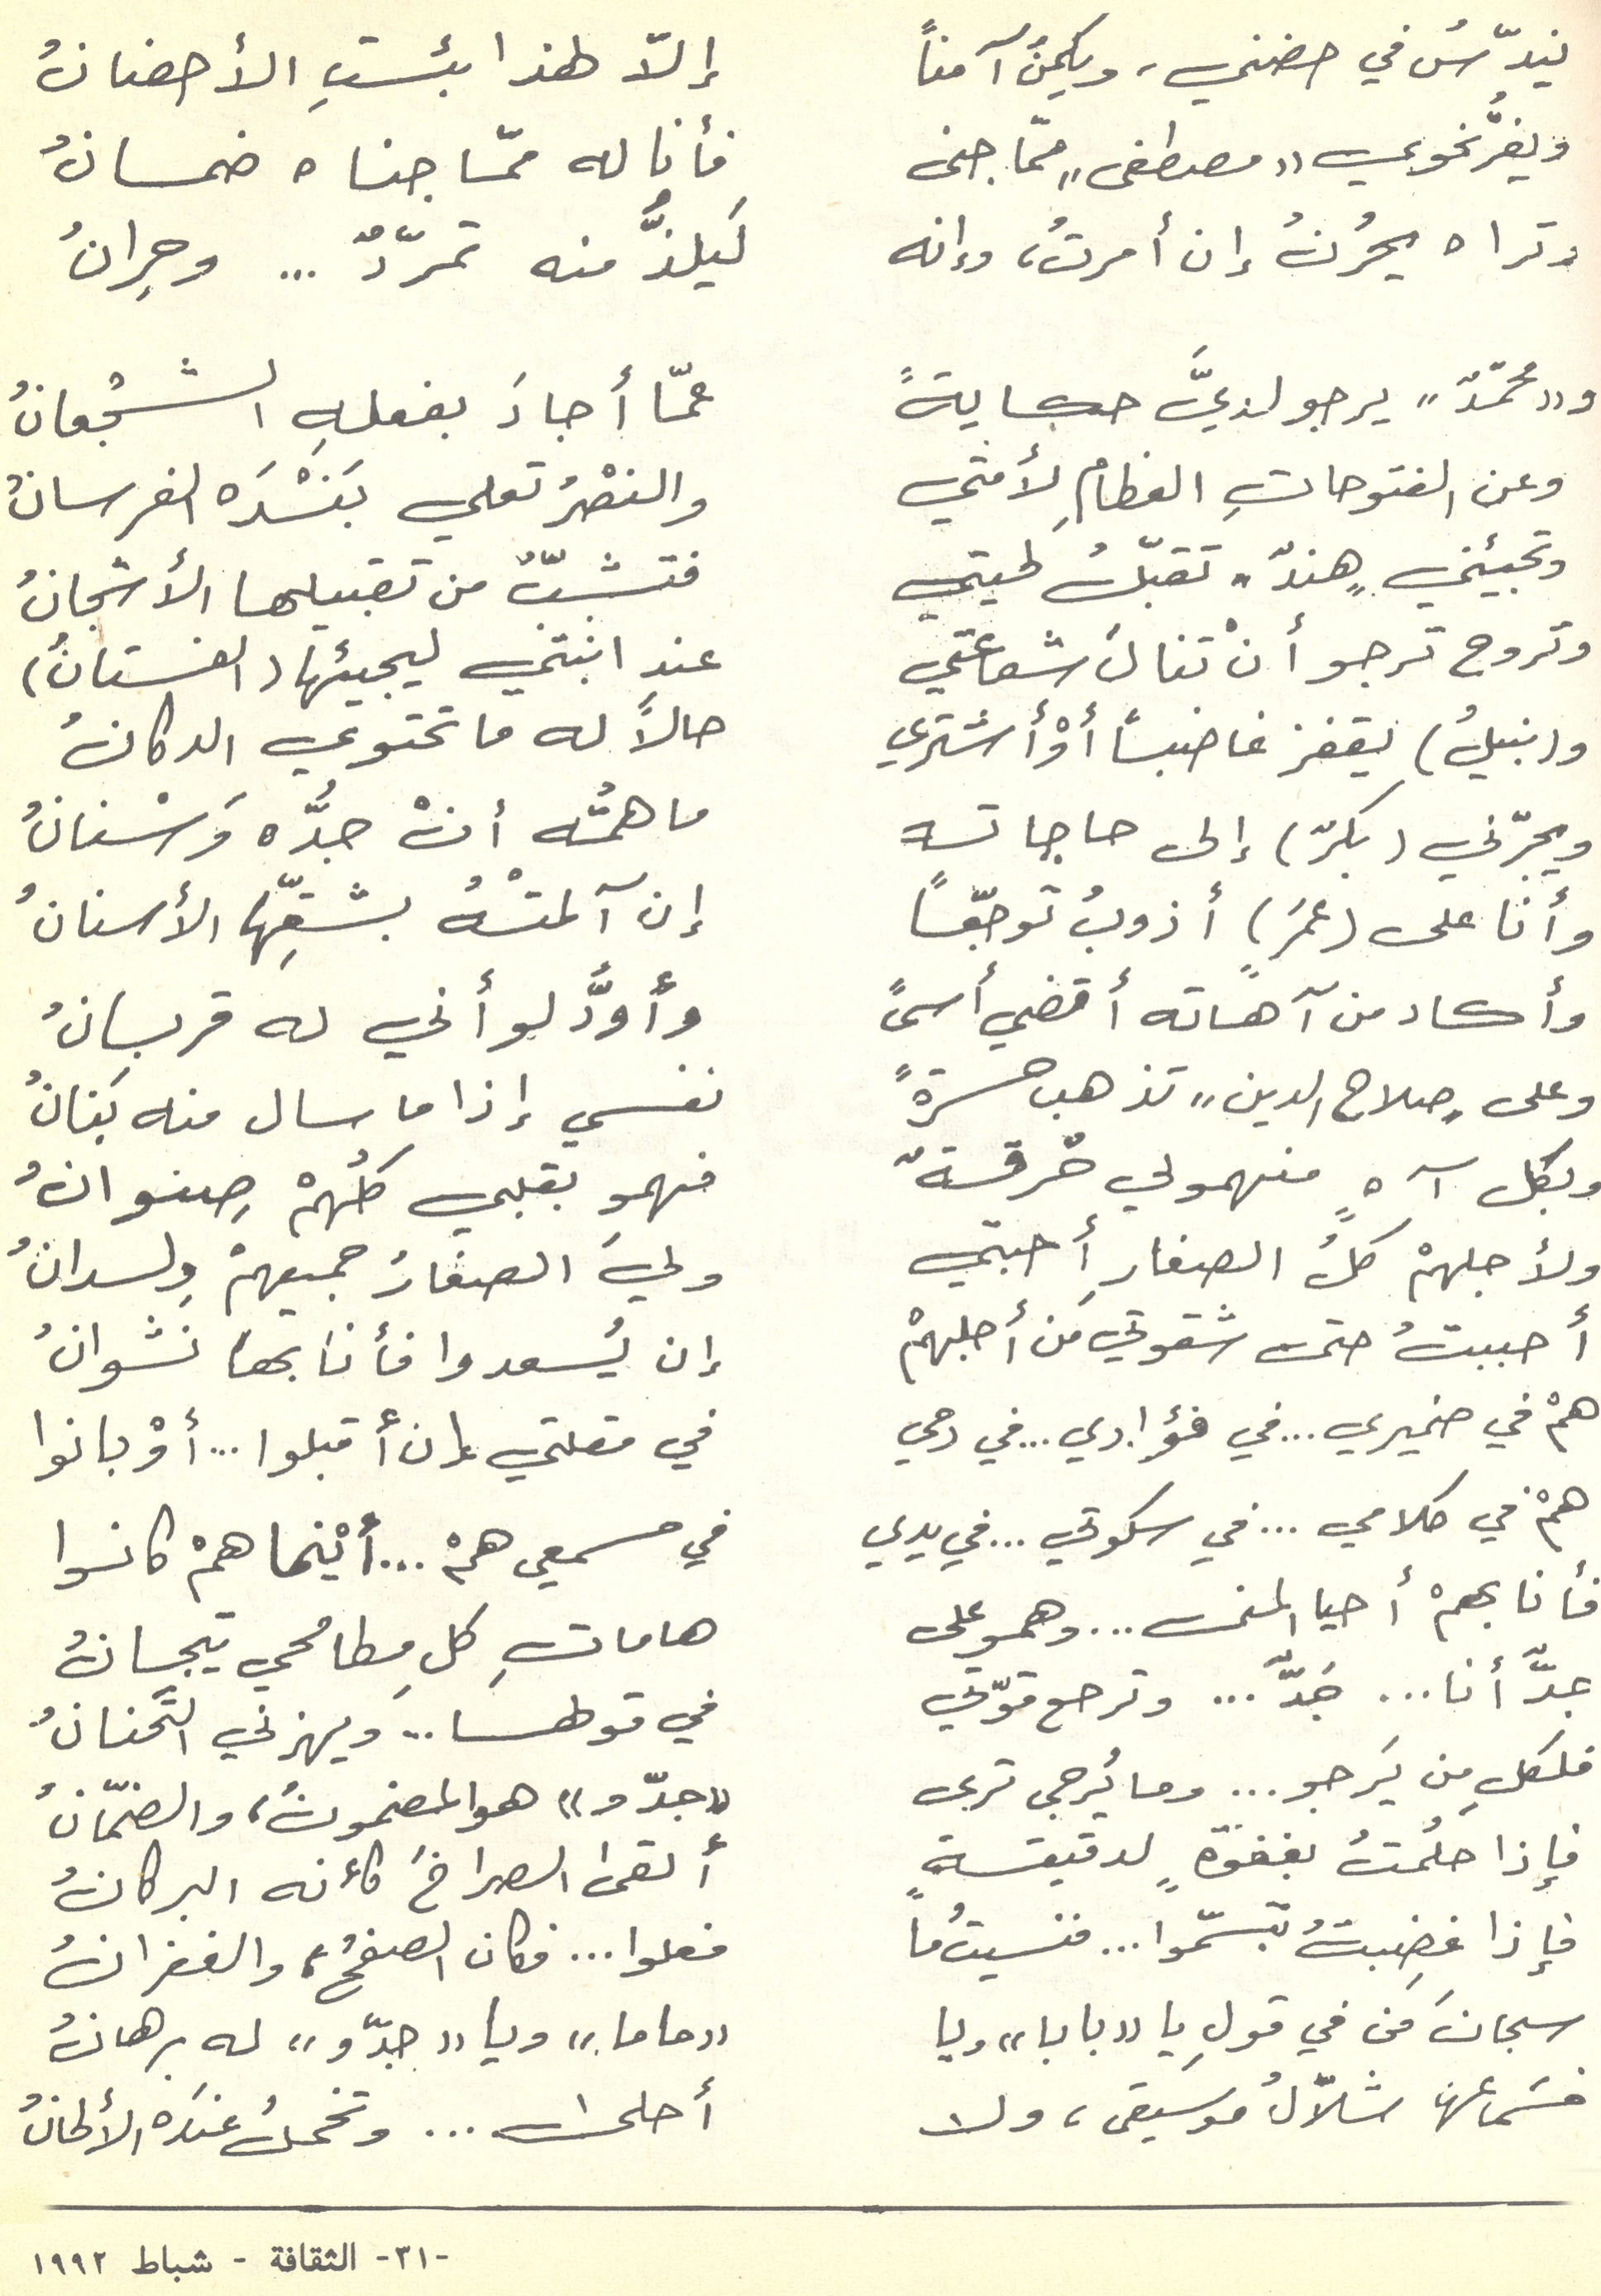 يندسّ في حضني، ويكمنُ آمناً إلاّ لهذا بئستِ الأحضانُ
ويفرُّ نحوي «مصطفى» ممّا جنى فأنا له ممّا جناه ضمانُ
وتراه يحرُنُ إن أمرتُ، وإنه لَيلذُّ منه تمرّدٌ ... وحِرانُ
و«محمّدٌ» يرجو لديَّ حكايةً عمّا أجادَ بفعلهِ الشجْعانُ
وعن الفتوحاتِ العظامِ لأمتي والنصْرُ تعلي بَنْدَه الفرسانُ
وتجيئني «هندٌ» تقبّلُ لحيتي فتشبّ من تقبيلها الأشجانُ
وتروح ترجو أنْ تنالَ شفاعتي عند ابنتي ليجيئها (الفستانُ)
و(نبيلُ) يقفز غاضباً أوْ أشتري حالاً له ما تحتوي الدكانُ
ويجرّني (بكرٌ) إلى حاجاته ما همُّه أنْ جدُّه وَسْنانُ
وأنا على (عمرٍ) أذوبُ توجّعاً إن آلمتْهُ بشقِّها الأسنانُ
وأكاد من آهاته أقضي أسىً وأودُّ لو أني له قربانُ
وعلى «صلاح الدين» تذهب حسرةً نفسي إذا ما سال منه بَنانُ
وبكل آهٍ منهمو لي حُرقةٌ فهمو بقلبي كلُّهمْ صِنوانُ
ولأجلهمْ كلُّ الصغارِ أحبتي ولِيَ الصغارُ جميعهمْ وِلدانُ
أحببتُ حتى شقوتي مَن أجلهمْ إن يُسعدوا فأنا بها نشوانُ
همْ في ضميري... في فؤادي... في دمي في مقلتي إن أقبلوا... أوْ بانوا
همْ في كلامي ... في سكوتي ... في يدي في مسمعي همْ ... أيْنما همْ كانوا
فأنا بهمْ أحيا المنى ... وهمو على هاماتِ كل مطامحي تيجانُ
جدٌّ أنا ... جَدٌّ ... وترجع قوّتي في قولها .. ويهزني التَّحنانُ
فلكلِ من يَرجو ... وما يُرجى ترى «جدّو» هو المضمونُ، والضمّانُ
فإذا حلُمتُ بغفوةٍ لدقيقةٍ ألقى الصراخَ كأنه البركانُ
فإذا غضِبتُ تبسّموا... فنسيتُ ما فعلوا... فكان الصفحُ، والغفرانُ
سبحانَ مَن في قولِ يا «بابا» ويا «ماما» ويا «جدّو» له برهانُ
فسَماعها شلّالُ موسيقى، ولا أحلى ... وتخجلُ عندَه الألحانُ
-٣١- الثقافة - شباط ١٩٩٢